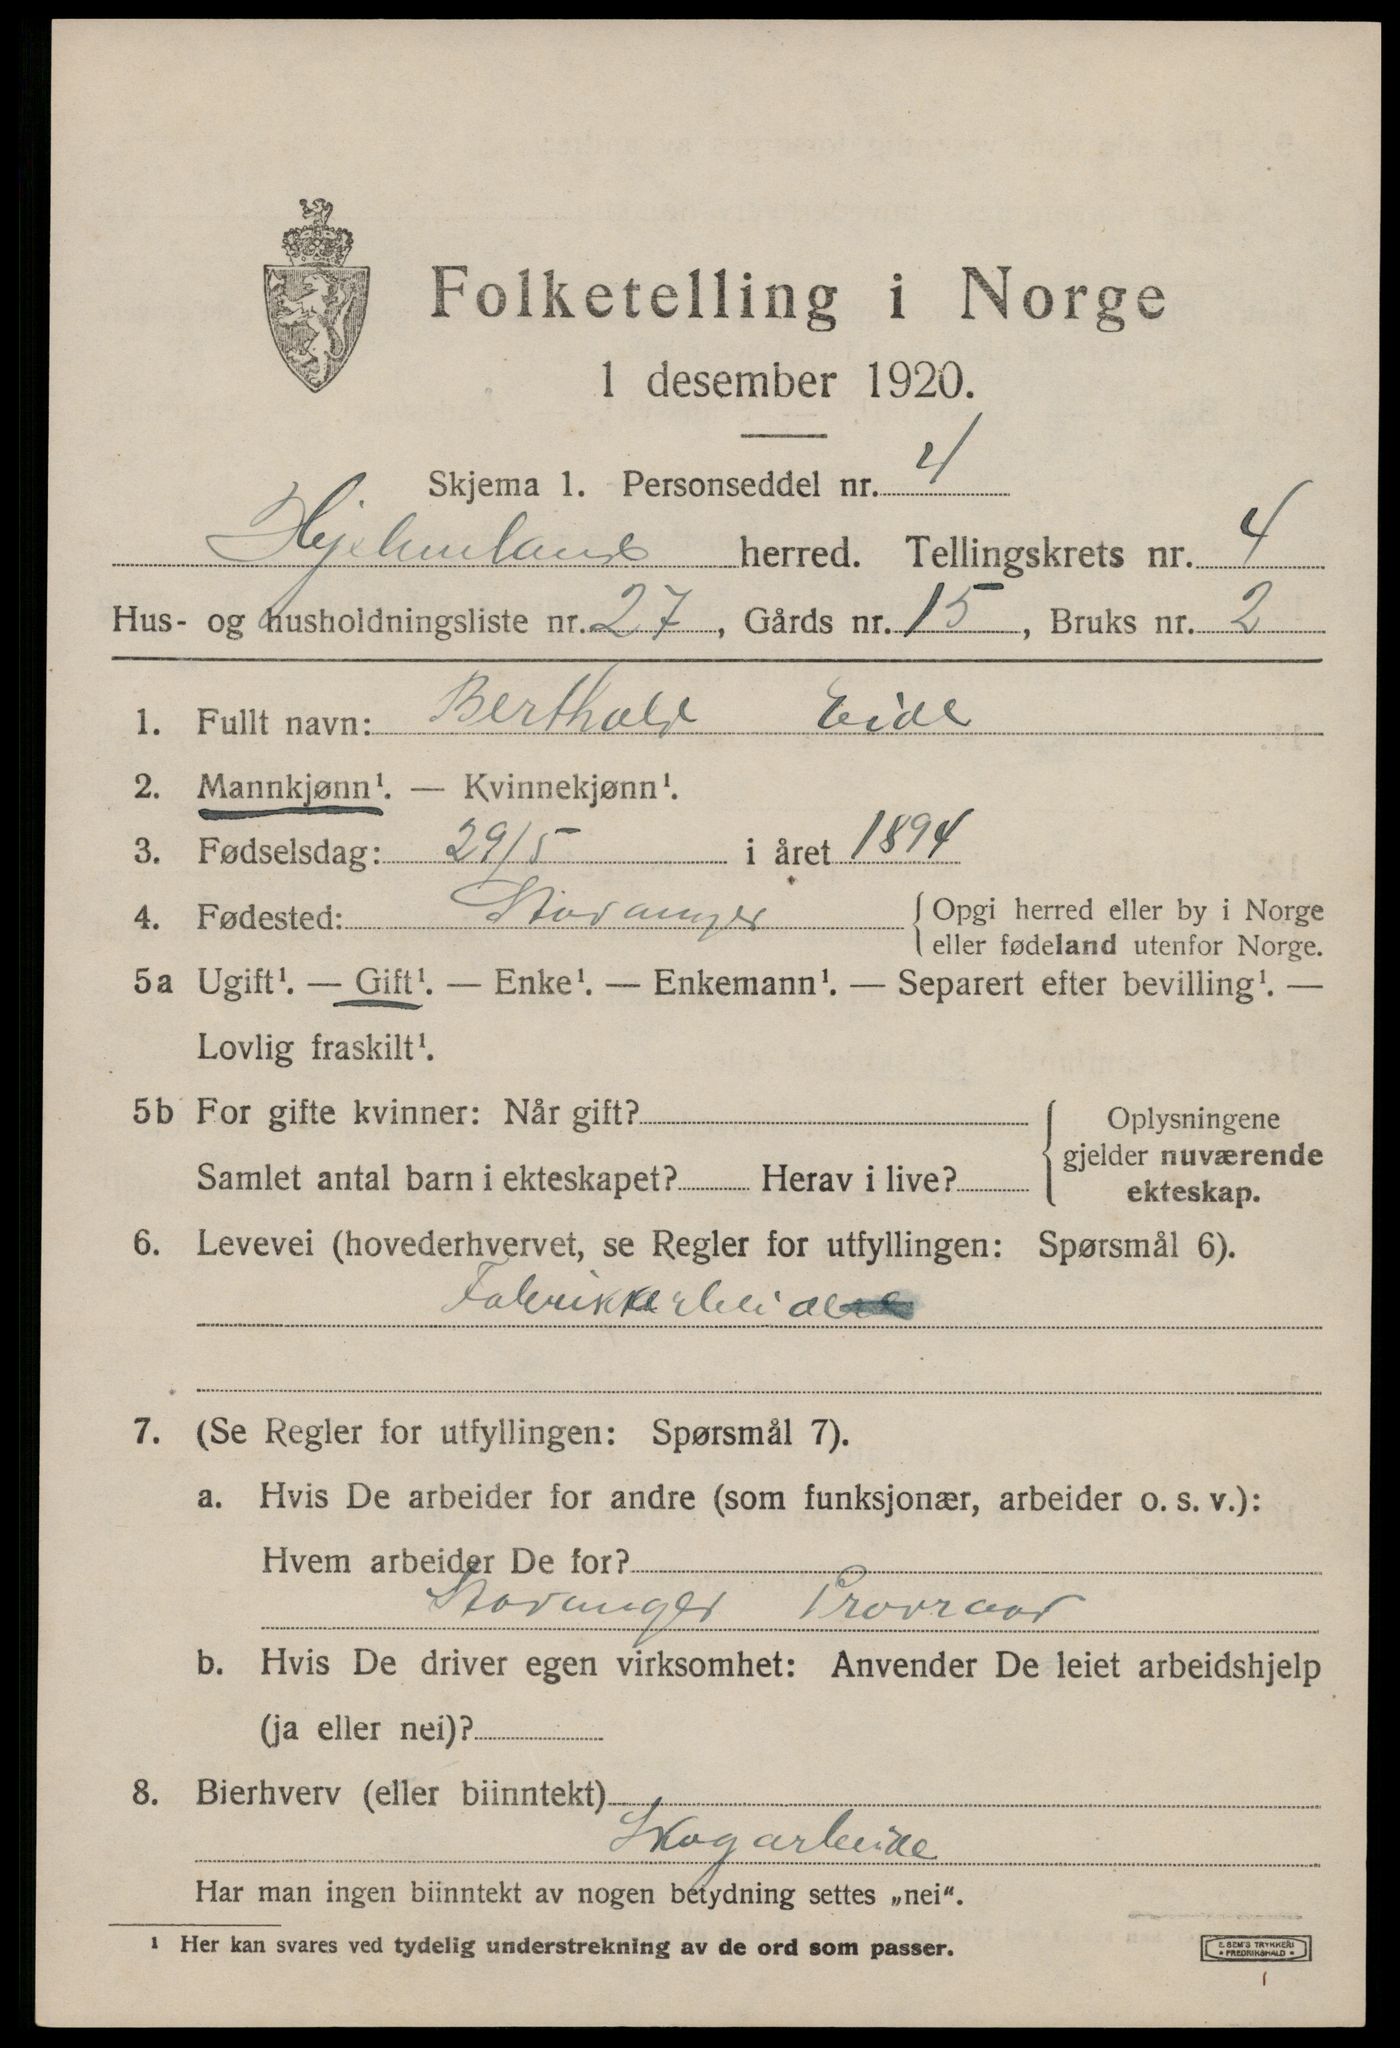 Folketelling i Norge
1 desember 1920.
Skjema 1. Personseddel nr. 4
Hjelmeland herred. Tellingskrets nr. 4
Hus- og husholdningsliste nr. 27, Gårds nr. 15, Bruks nr. 2
1. Fullt navn: Berthold Eide
2. Mannkjønn¹. — Kvinnekjønn¹.
3. Fødselsdag: 29/5 i året 1894
4. Fødested: Stavanger { Opgi herred eller by i Norge
eller fødeland utenfor Norge.
5a Ugift¹. — Gift¹. — Enke¹. — Enkemann¹. — Separert efter bevilling¹. —
Lovlig fraskilt¹.
5b For gifte kvinner: Når gift? { Oplysningene
gjelder nuværende
Samlet antal barn i ekteskapet? Herav i live?
ekteskap.
6. Levevei (hovederhvervet, se Regler for utfyllingen: Spørsmål 6).
Fabrikkarbeide
7. (Se Regler for utfyllingen: Spørsmål 7).
a. Hvis De arbeider for andre (som funksjonær, arbeider o. s. v.):
Hvem arbeider De for?
Stavanger
b. Hvis De driver egen virksomhet: Anvender De leiet arbeidshjelp
(ja eller nei)?
8. Bierhverv (eller biinntekt)
Skogarbeide
Har man ingen biinntekt av nogen betydning settes „nei“.
¹ Her kan svares ved tydelig understrekning av de ord som passer.
E. SEM'S TRYKKERI
* FREDRIKSHALD *